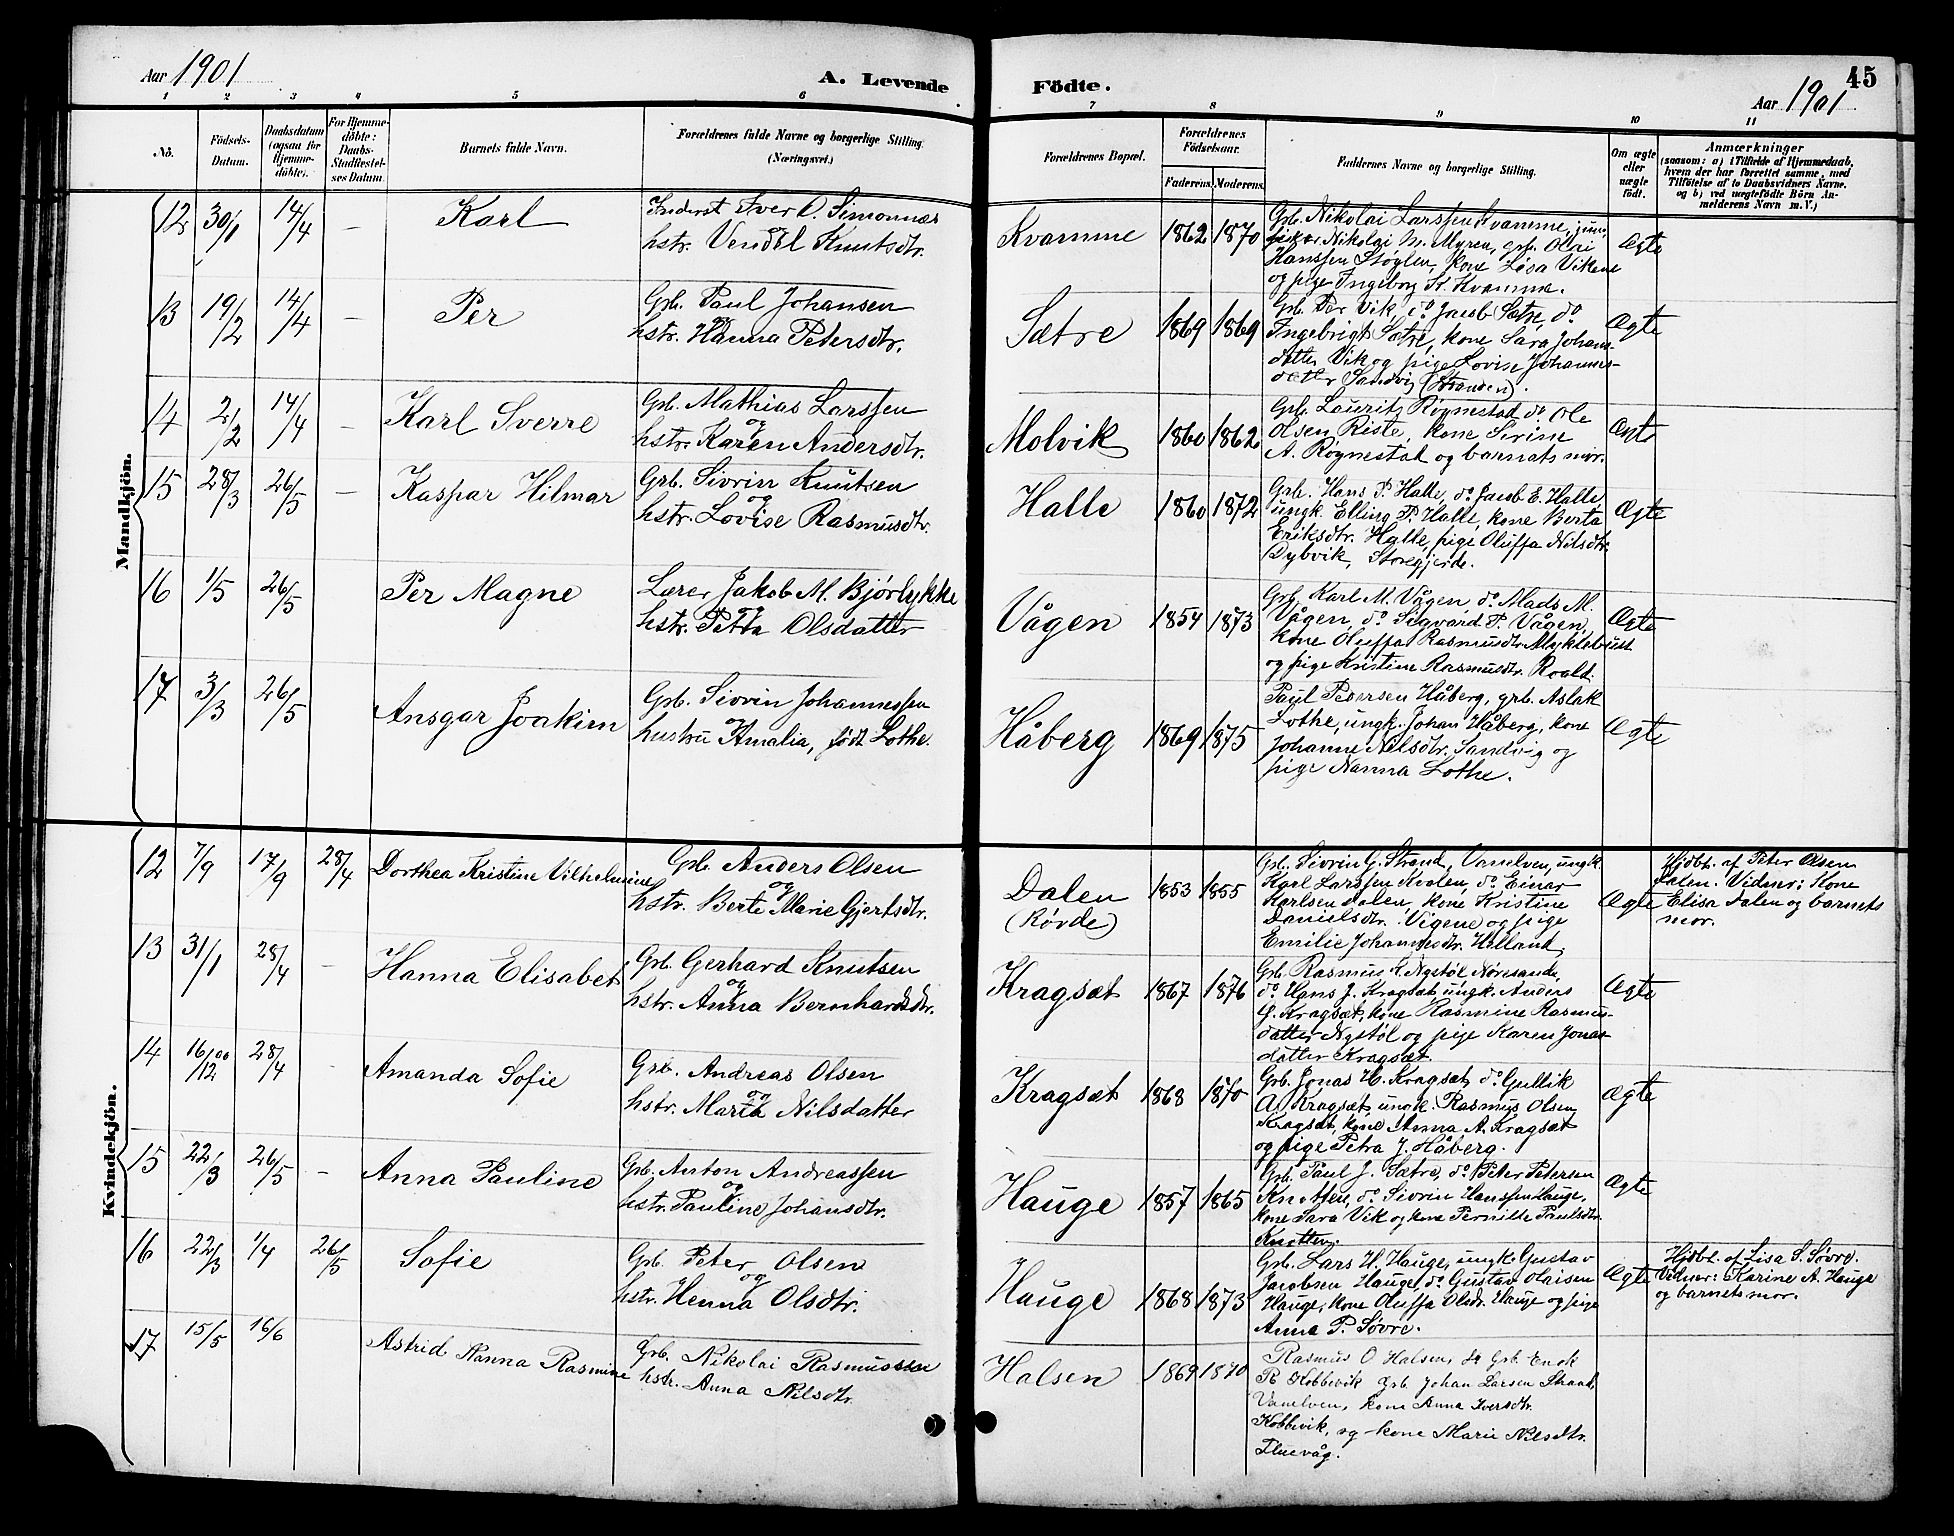 Aar 1901
A. Levende
Födte.
Aar 1901
45
1 2 3 4 5 6 7 8 9 10 11
No.
Födsels-Datum.
Daabsdatum (ogsaa for Hjemme-döbte).
For Hjemme-döbte: Daabs-Stadfæstel-ses Datum.
Barnets fulde Navn.
Forældrenes fulde Navne og borgerlige Stilling. (Næringsvei.)
Forældrenes Bopæl.
Forældrenes Födselsaar.
Faderens. Moderens.
Faddernes Navne og borgerlige Stilling.
Om ægte eller uægte födt.
Anmærkninger
(saasom: a) i Tilfælde af Hjemmedaab, hvem der har forrettet samme, med Tilföielse af to Daabsvidners Navne, og b) ved uægtefödte Börn An-melderens Navn m. V.)
Mandkjön.
12 30/1 14/4 – Karl
Inderst Iver O. Simonnæs
hstr. Vendel Knutsdtr.
Kvamme 1862 1870
Grb. Nikolai Larssen Kvamme,
Nikolai M. Myren, grb.
Hanssen Støylen, kone Lisa Vikene
og pige Ingeborg Kvamme.
Ægte
13 19/2 14/4 – Per
Grb. Paul Johansen
og
hstr. Hanna Petersdtr.
Sætre 1869 1869
Grb. Per Vik, do Jacob Sætre, do
Ingebrigt Sætre, kone Sara Johans-
datter Vik og pige Lovise Johannes-
datter Sandvig (Stranden).
Ægte
14 2/2 14/4 – Karl Sverre
Grb. Mathias Larssen
og
hstr. Karen Andersdtr.
Molvik 1860 1862
Grb. Laurits Røgnestad do Ole
Olsen Riste, kone Sirine
A. Røgnestad og barnets mor.
Ægte
15 28/3 26/5 – Kaspar Hilmar
Grb. Sivrin Knutsen
og
hstr. Lovise Rasmusdtr.
Halle 1860 1872
Grb. Hans P. Halle, do Jacob E. Halle
ungk. Elling P. Halle, kone Berta
Eriksdtr. Halle, pige Oluffa Nilsdtr.
Dybvik, Storegjerde.
Ægte
16 1/5 26/5 Per Magne
Lærer Jakob M. Bjørlykke
og
hstr. Petra Olsdatter
Vågen 1854 1873
Grb. Karl M. Vågen, do Mads M.
Vågen, do Sigvard P. Vågen,
kone Oluffa Rasmusdtr. Myklebust
og pige Kristine Rasmusdtr. Roald.
Ægte
17 3/3 26/5 Ansgar Joakim
Grb. Sivrin Johannessen
og
hustru Amalia, født Lothe.
Håberg 1869 1875
Paul Pedersen Håberg, grb. Aslak
Lothe, ungk. Johan Håberg, kone
Johanne Nilsdtr. Sandvig og
pige Nanna Lothe.
Ægte
Kvindekjön.
12 7/9 17/9 28/4 Dorthea Kristine Vilhelmine
Grb. Anders Olsen
og
hstr. Berte Marie Gjertsdtr.
Dalen 1853 1855
(Rövde)
Grb. Sivrin G. Strand, Vanelven, ungk.
Karl Larssen Kvolen, do Einar
Karlsen Dalen, kone Kristine
Danielsdtr. Vigene og pige
Emilie Johannesdtr. Helland.
Ægte
Hjdbt. af Peter Olsen
Dalen. Vidner: Kone
Elisa Dalen og barnets
mor.
13 31/1 28/4 – Hanna Elisabet
Grb. Gerhard Knutsen
og
hstr. Anna Bernhardsdtr.
Kragsæt 1867 1876
Grb. Rasmus Nystøl Nøresande,
do Hans J. Kragsæt, ungk. Anders
G. Kragsæt, kone Rasmine Rasmus-
datter Nystøl og pige Karen Jonas
datter Kragsæt.
Ægte
14 16/12 00 28/4 Amanda Sofie
Grb. Andreas Olsen
og
hstr. Maria Nilsdatter
Kragsæt 1868 1870
Grb. Jonas H. Kragsæt, do Gullik
A. Kragsæt, ungk. Rasmus Olsen
Kragsæt, kone Anna A. Kragsæt
og pige Petra J. Håberg.
Ægte
15 22/3 26/5 – Anna Pauline
Grb. Anton Andreassen
og
hstr. Pauline Johansdtr.
Hauge 1857 1865
Grb. Paul J. Sætre, do Peter Petersen
Knotten, do Sivrin Hanssen Hauge,
kone Sara Vik og kone Pernilde Paulsdtr.
Knotten.
Ægte
16 22/3 1/4 26/5 Sofie
Grb. Peter Olsen
og
hstr. Henna Olsdtr.
Hauge 1868 1873
Grb. Lars H. Hauge, ungk. Gustav
Jacobsen Hauge, do Gustav Olaisen
Hauge, kone Oluffa Olsdr. Hauge og pige
Anna P. Søvre.
Ægte
Hjdbt. af Lisa S. Søvre.
Vidner: Karine A. Hauge
og barnets mor.
17 15/5 16/6 Astrid Nanna Rasmine
Grb. Nikolai Rasmussen
hstr. Anna Nilsdtr.
Halsen 1869 1870
Rasmus O. Halsen, Grb. Enok
R. Kobbevik Grb. Johan Larsen Straad,
Vanelven, kone Anna Iversdtr.
Kobbevik, og kone Marie Nilsdtr.